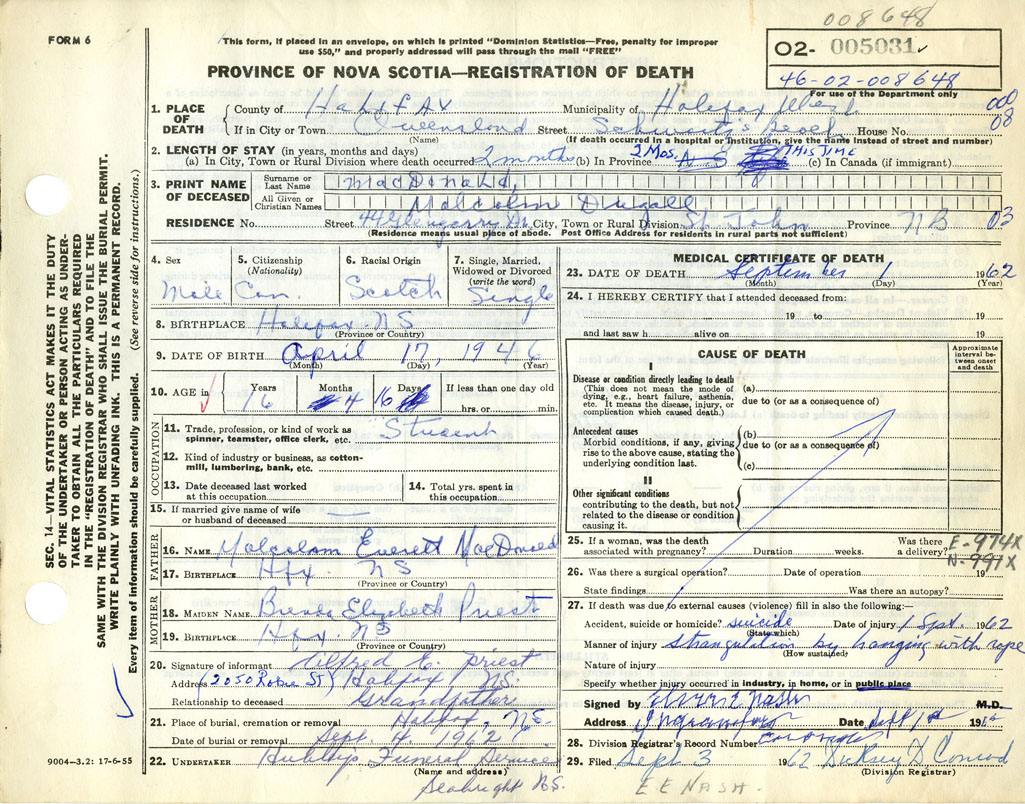 008648
FORM 6
This form, if placed in an envelope, on which is printed "Dominion Statistics—Free, penalty for improper
use $50," and properly addressed will pass through the mail "FREE"
O2- 005031
46-02-008648
For use of the Department only
PROVINCE OF NOVA SCOTIA—REGISTRATION OF DEATH
1. PLACE OF DEATH
County of Halifax Municipality of Halifax West 000
If in City or Town Queensland Street Schwartz's Beach House No. 08
(Name) (If death occurred in a hospital or Institution, give the name instead of street and number)
2. LENGTH OF STAY (in years, months and days)
(a) In City, Town or Rural Division where death occurred 2 months (b) In Province 2 Mos. THIS TIME (c) In Canada (if immigrant)
3. PRINT NAME OF DECEASED
Surname or Last Name MacDonald,
All Given or Christian Names Malcolm Dugall
RESIDENCE No. Street 44 Glengarry Dr. City, Town or Rural Division St. John Province NB 03
(Residence means usual place of abode. Post Office Address for residents in rural parts not sufficient)
4. Sex
Male
5. Citizenship
(Nationality)
Can.
6. Racial Origin
Scotch
7. Single, Married, Widowed or Divorced
(write the word)
Single
8. BIRTHPLACE Halifax NS
(Province or Country)
9. DATE OF BIRTH April 17, 1946
(Month) (Day) (Year)
10. AGE in Years Months Days If less than one day old
16 4 16 hrs. or min.
OCCUPATION
11. Trade, profession, or kind of work as
spinner, teamster, office clerk, etc. "Student"
12. Kind of industry or business, as cotton-
mill, lumbering, bank, etc.
13. Date deceased last worked
at this occupation
14. Total yrs. spent in
this occupation
15. If married give name of wife
or husband of deceased —
FATHER
16. NAME Malcolm Everett MacDonald
17. BIRTHPLACE Hfx. NS
(Province or Country)
MOTHER
18. MAIDEN NAME Brenda Elizabeth Priest
19. BIRTHPLACE Hfx. NS
(Province or Country)
20. Signature of informant Wilfred C. Priest
Address (2050 Robie St) Halifax NS.
Relationship to deceased Grandfather
21. Place of burial, cremation or removal Halifax, NS.
Date of burial or removal Sept. 4, 1962
22. UNDERTAKER Hubley's Funeral Services
(Name and address)
Seabright NS.
MEDICAL CERTIFICATE OF DEATH
23. DATE OF DEATH September 1 1962
(Month) (Day) (Year)
24. I HEREBY CERTIFY that I attended deceased from:
19 to 19
and last saw h alive on 19
CAUSE OF DEATH
Approximate interval between onset and death
I
Disease or condition directly leading to death
(This does not mean the mode of
dying, e.g., heart failure, asthenia,
etc. It means the disease, injury, or
complication which caused death.)
(a)
due to (or as a consequence of)
Antecedent causes
Morbid conditions, if any, giving
rise to the above cause, stating the
underlying condition last.
(b)
due to (or as a consequence of)
(c)
II
Other significant conditions
contributing to the death, but not
related to the disease or condition
causing it.
25. If a woman, was the death
associated with pregnancy? Duration weeks. Was there a delivery?
E-974X
N-991X
26. Was there a surgical operation? Date of operation 19
State findings Was there an autopsy?
27. If death was due to external causes (violence) fill in also the following:—
Accident, suicide or homicide? suicide Date of injury 1 Sept. 1962
(State which)
Manner of injury strangulation by hanging with rope
(How sustained)
Nature of injury
Specify whether injury occurred in industry, in home, or in public place
Signed by M.D.
Address Date Sept 1st 19
28. Division Registrar's Record Number
29. Filed Sept 3 1962
(Division Registrar)
E E NASH.
SEC. 14—VITAL STATISTICS ACT MAKES IT THE DUTY
OF THE UNDERTAKER OR PERSON ACTING AS UNDER-
TAKER TO OBTAIN ALL THE PARTICULARS REQUIRED
IN THE "REGISTRATION OF DEATH" AND TO FILE THE
SAME WITH THE DIVISION REGISTRAR WHO SHALL ISSUE THE BURIAL PERMIT.
WRITE PLAINLY WITH UNFADING INK. THIS IS A PERMANENT RECORD.
Every item of information should be carefully supplied. (See reverse side for instructions.)
9004-3.2: 17-6-55